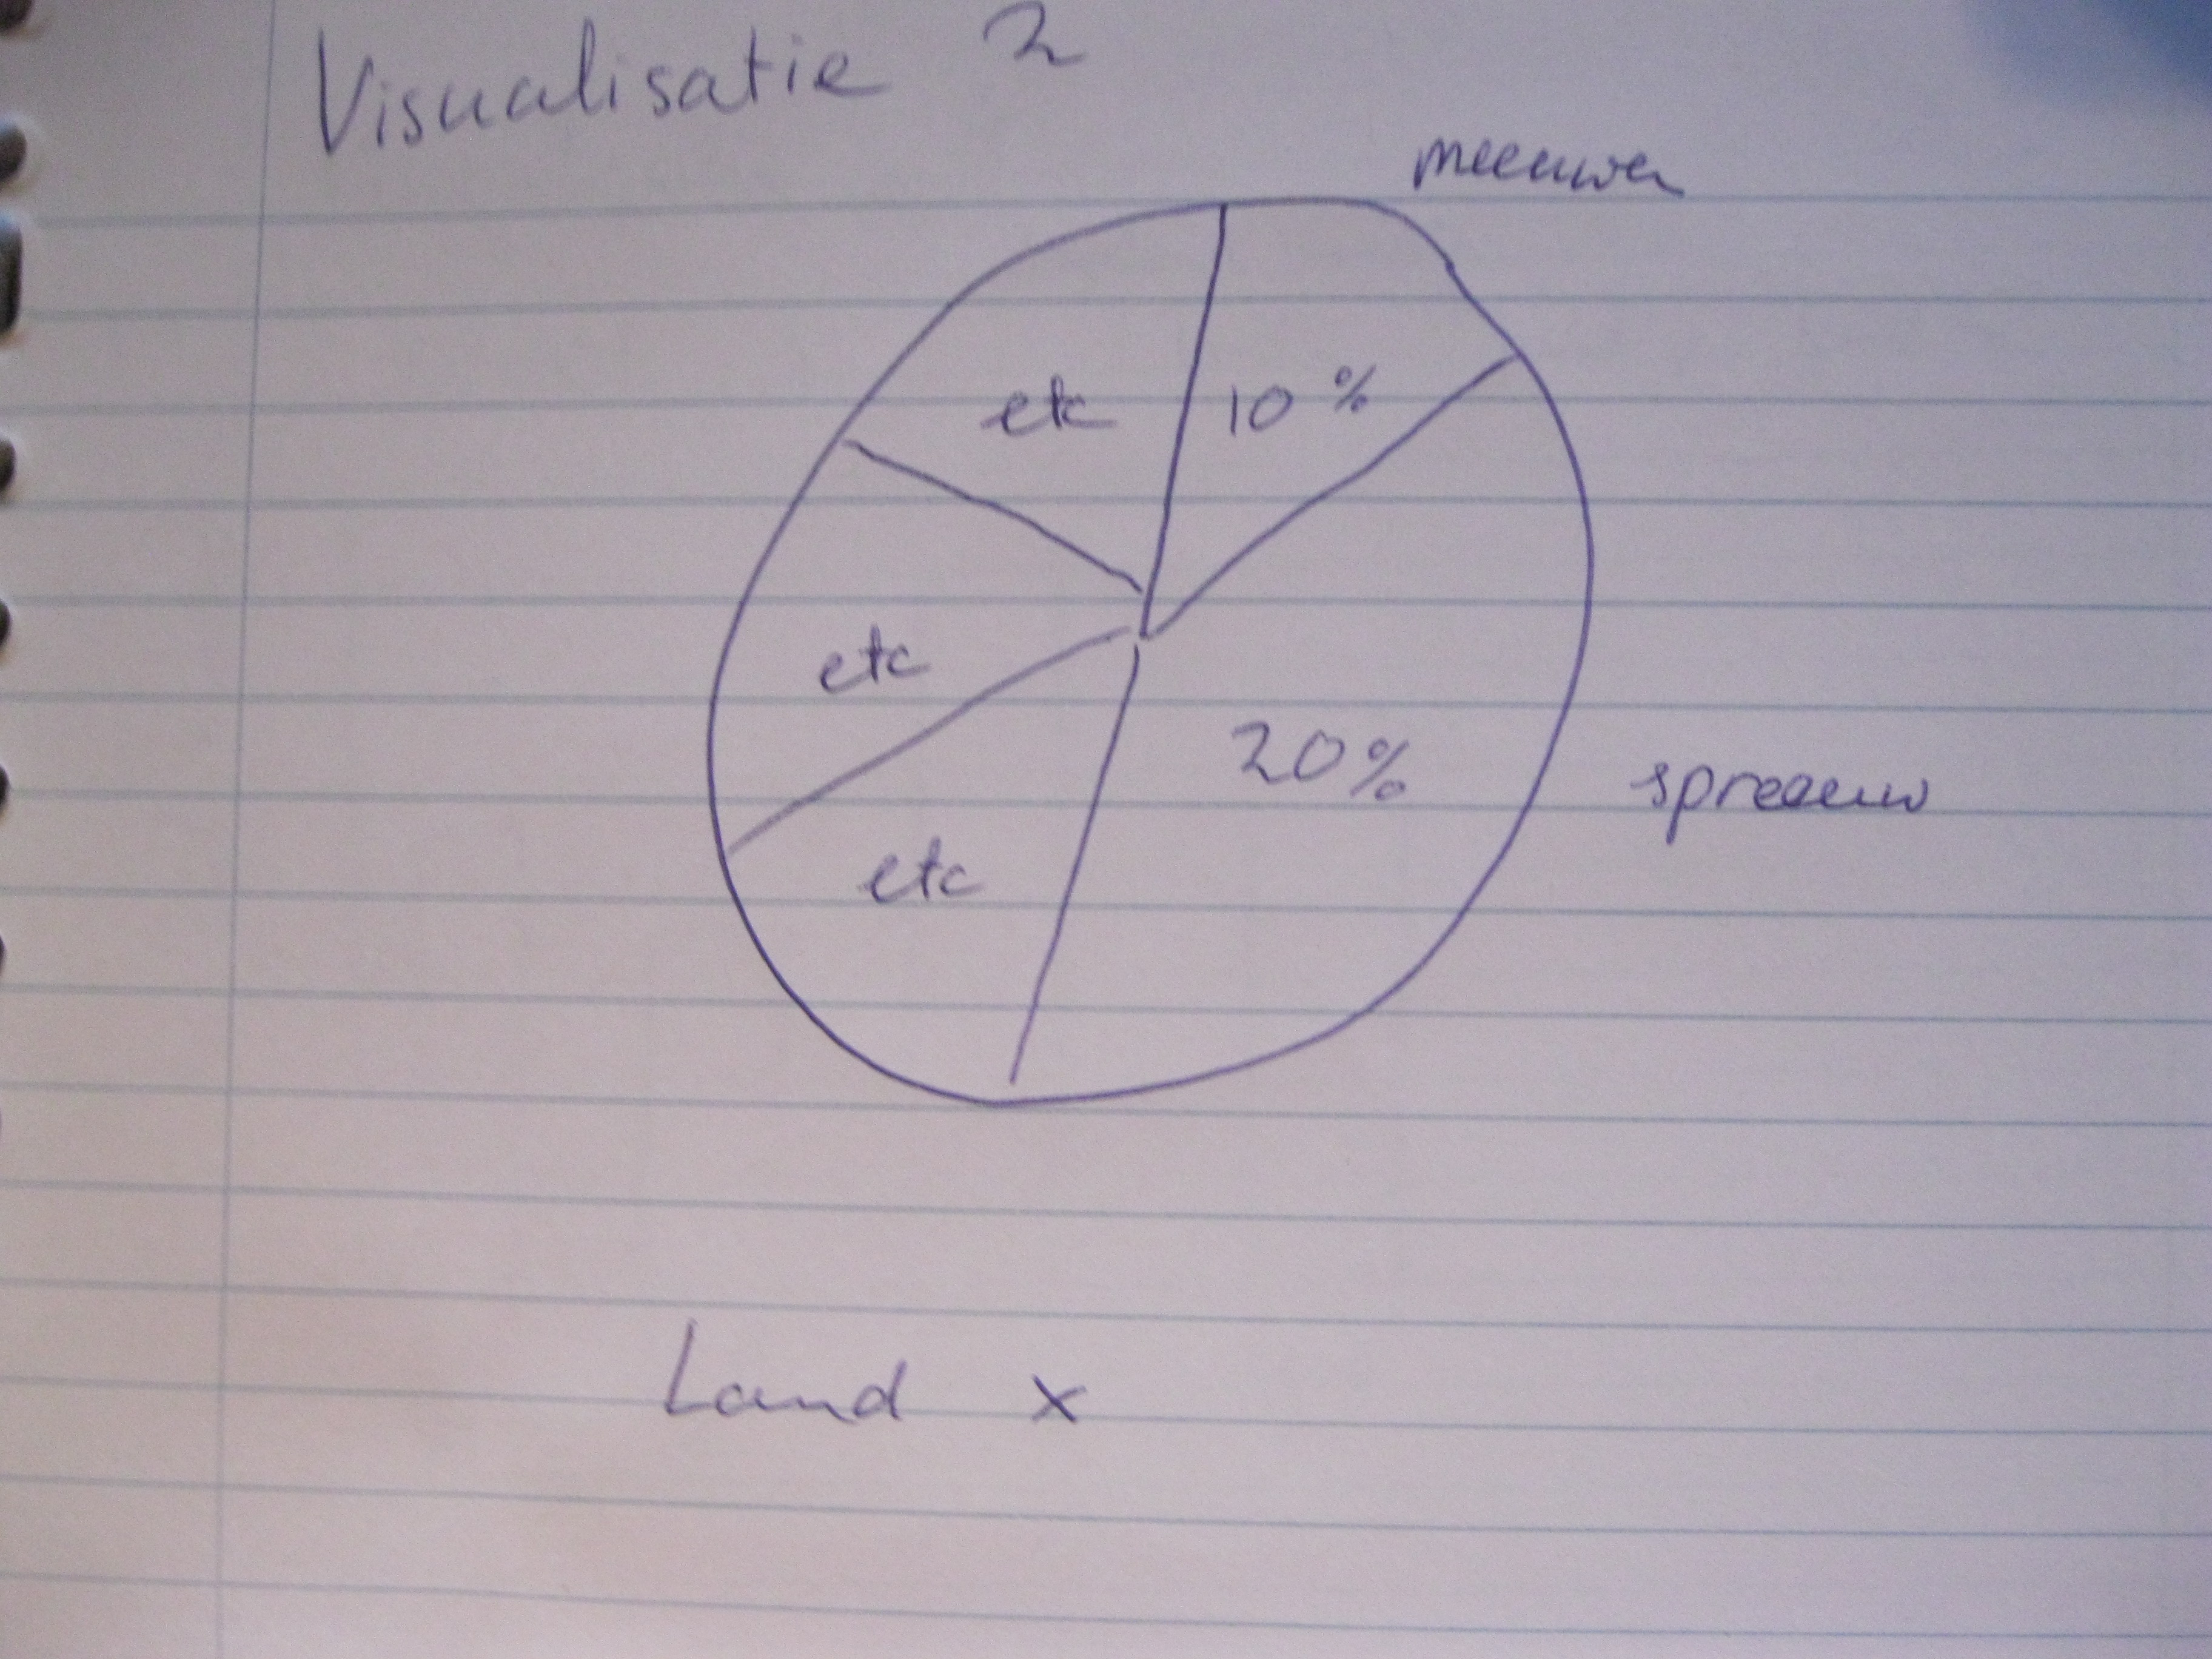 Visualisatie 2
meeuwen
etc
10 %
etc
20%
spreeuw
etc
Land x